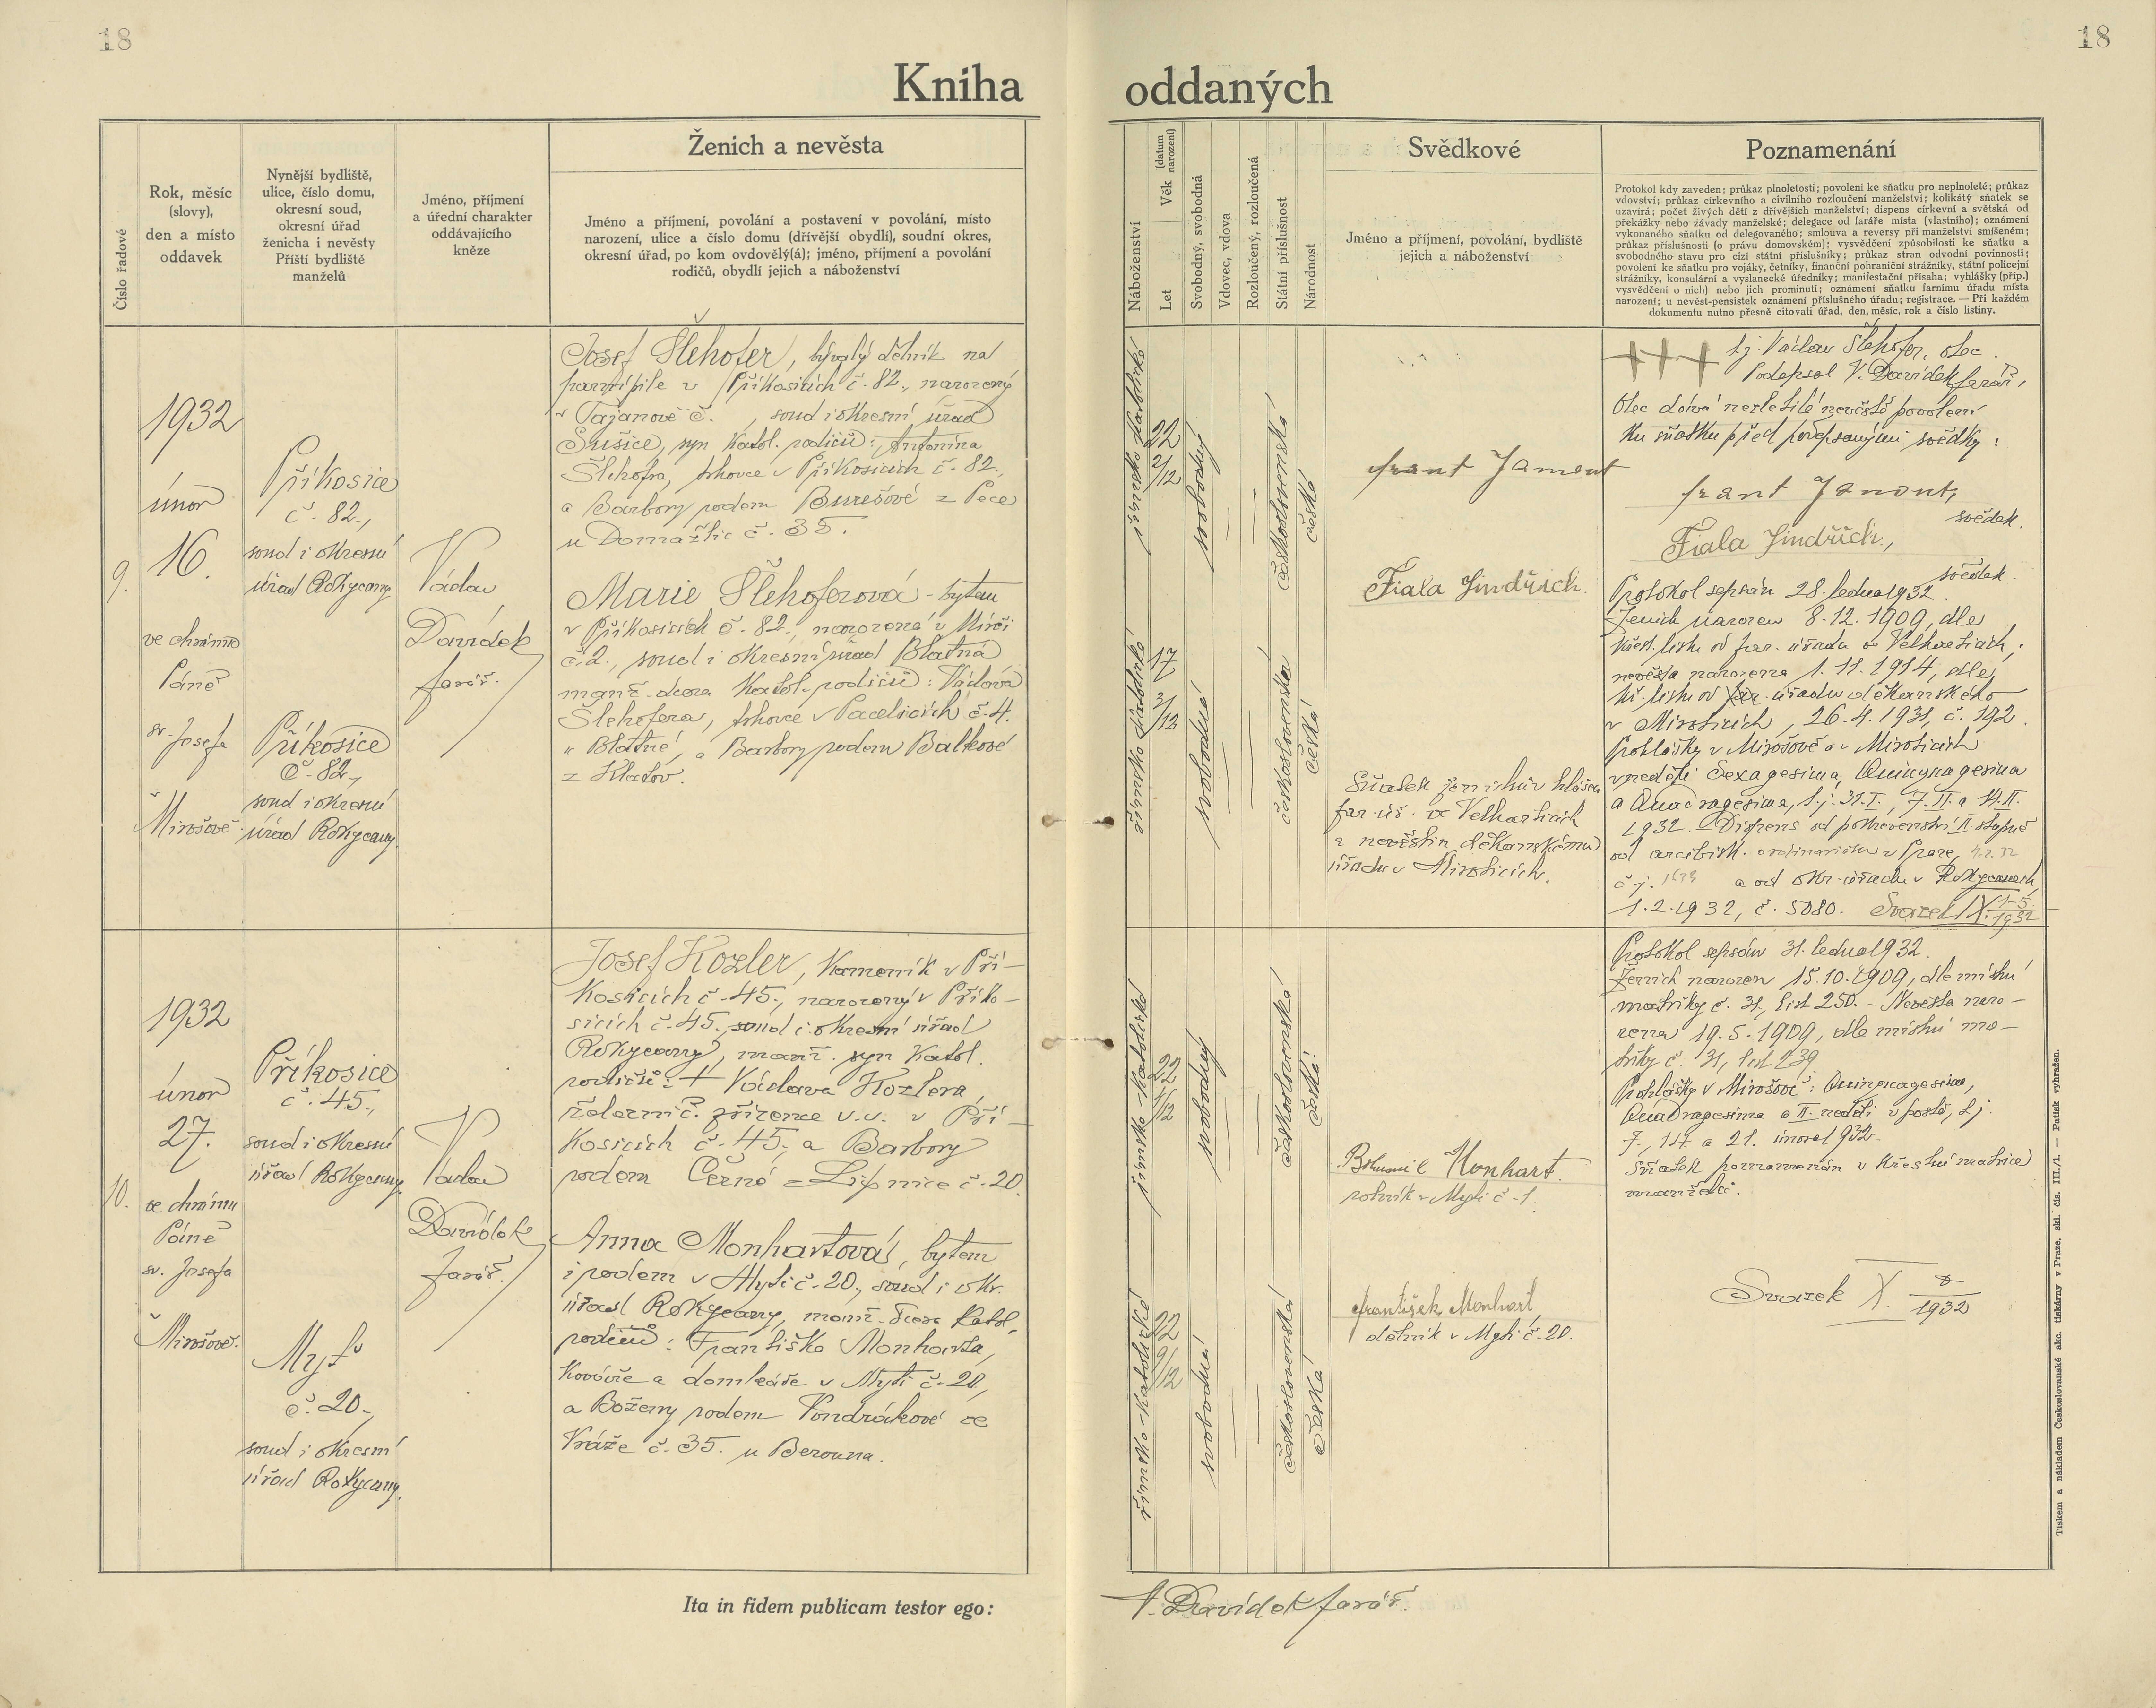 18
18
Kniha oddaných
Číslo řadové
Rok, měsíc
(slovy),
den a místo
oddavek
Nynější bydliště,
ulice, číslo domu,
okresní soud,
okresní úřad
ženicha i nevěsty
Příští bydliště
manželů
Jméno, příjmení
a úřední charakter
oddávajícího
kněze
Ženich a nevěsta
Jméno a příjmení, povolání a postavení v povolání, místo
narození, ulice a číslo domu (dřívější obydlí), soudní okres,
okresní úřad, po kom ovdovělý(á); jméno, příjmení a povolání
rodičů, obydlí jejich a náboženství
Náboženství
Let
Věk (datum narození)
Svobodný, svobodná
Vdovec, vdova
Rozloučený, rozloučená
Státní příslušnost
Národnost
Svědkové
Jméno a příjmení, povolání, bydliště
jejich a náboženství
Poznamenání
Protokol kdy zaveden; průkaz plnoletosti; povolení ke sňatku pro neplnoleté; průkaz
vdovství; průkaz církevního a civilního rozloučení manželství; kolikátý sňatek se
uzavírá; počet živých dětí z dřívějších manželství; dispens církevní a světská od
překážky nebo závady manželské; delegace od faráře místa (vlastního); oznámení
vykonaného sňatku od delegovaného; smlouva a reversy při manželství smíšeném;
průkaz příslušnosti (o právu domovském); vysvědčení způsobilosti ke sňatku a
svobodného stavu pro cizí státní příslušníky; průkaz stran odvodní povinnosti;
povolení ke sňatku pro vojáky, četníky, finanční pohraniční strážníky, státní policejní
strážníky, konsulární a vyslanecké úředníky; manifestační přísaha; vyhlášky (příp.)
vysvědčení o nich) nebo jich prominutí; oznámení sňatku farnímu úřadu místa
narození; u nevěst-pensistek oznámení příslušného úřadu; registrace. — Při každém
dokumentu nutno přesně citovati úřad, den, měsíc, rok a číslo listiny.
9.
1932
únor
16.
ve chrámě
Páně
sv. Josefa
v Mirošově
Příkosice
č. 82.,
soud i okresní
úřad Rokycany
Příkosice
č. 82.,
soud i okresní
úřad Rokycany.
Václav
Davídek
farář.
Josef Šlehofer, bývalý dělník na
parní pile v Příkosicích č. 82., narozený
v Tajanově č. , soud i okresní úřad
Sušice, syn katol. rodičů: Antonína
Šlehofra, trhovce v Příkosicích č. 82.,
a Barbory rodem Burešové z Pece
u Domažlic č. 35.
Marie Šlehoferová - bytem
v Příkosicích č. 82., narozená v Mirči
č. 2., soud i okresní úřad Blatná
manž. dcera katol. rodičů: Václava
Šlehofera, trhovce v Pacelicích č. 4.
u Blatné, a Barbory rodem Balkové
z Klatov.
římsko katolické
22
2/12
svobodný
československá
česká
římsko katolické
17
3/12
svobodná
československá
česká
frant Jamont
Fiala Jindřich.
Sňatek ženichův hlášen
far. úř. ve Velharticích
a nevěstin děkanskému
úřadu v Miroticích.
+++ t.j. Václav Šlehofer, otec.
Podepsal V. Davídek farář,
Otec dává nezletilé nevěstě povolení
ku sňatku před podepsanými svědky:
frant Jamont,
svědek.
Fiala Jindřich.,
svědek.
Protokol sepsán 28. ledna 1932.
Ženich narozen 8.12.1909, dle
křest. listu od far. úřadu ve Velharticích;
nevěsta narozena 1.11.1914, dle
kř. listu od far. úřadu děkanského
v Miroticích, 26.4.1931, č. 192.
Prohlášky v Mirošově a v Miroticích
v neděli Sexagesima, Quinquagesima
a Quadragesima, t.j. 31.I., 7.II. a 14.II.
1932. - Dispens od pokrevenství II. stupně
od arcibisk. ordinariátu v Praze, 4.2.32
č. j. 1673 a od okr. úřadu v Rokycanech
1.2.1932, č. 5080. Svazek IX. 1-5/1932
10.
1932
únor
27.
ve chrámu
Páně
sv. Josefa
v Mirošově.
Příkosice
č. 45.,
soud i okresní
úřad Rokycany.
Mýt
č. 20.,
soud i okresní
úřad Rokycany.
Václav
Davídek
farář.
Josef Kozler, kameník v Pří-
kosicích č. 45., narozený v Příko-
sicích č. 45., soud i okresní úřad
Rokycany, manž. syn katol.
rodičů: + Václava Kozlera,
železnič. zřízence v.v. v Pří-
kosicích č. 45., a Barbory
rodem Černé z Lipnice č. 20.
Anna Monhartová, bytem
i rodem v Mýti č. 20., soud i okr.
úřad Rokycany, manž. dcera katol.
rodičů: Františka Monharta,
kováře a domkáře v Mýti č. 20.,
a Boženy rodem Vondrákové ze
Vráže č. 35. u Berouna.
římsko-katolické
22
4/12
svobodný
československá
česká
římsko-katolické
22
9/12
svobodná
československá
česká
Bohumil Monhart.
rolník v Mýti č. 1.
František Monhart,
dělník v Mýti č. 20.
Protokol sepsán 31. ledna 1932.
Ženich narozen 15.10.1909, dle místní
matriky č. 31, list 250. - Nevěsta naro-
zena 19.5.1909, dle místní ma-
triky č. 31, list 239
Prohlášky v Mirošově: Quinquagesima,
Quadragesima a II. neděli v postě, t.j.
7., 14. a 21. února 1932.
Sňatek poznamenán v křestní matrice
manželů.
Svazek X. /1932
Ita in fidem publicam testor ego:
V. Davídek farář.
Tiskem a nákladem Českoslovanské akc. tiskárny v Praze, skl. čís. III./1. — Patisk vyhražen.